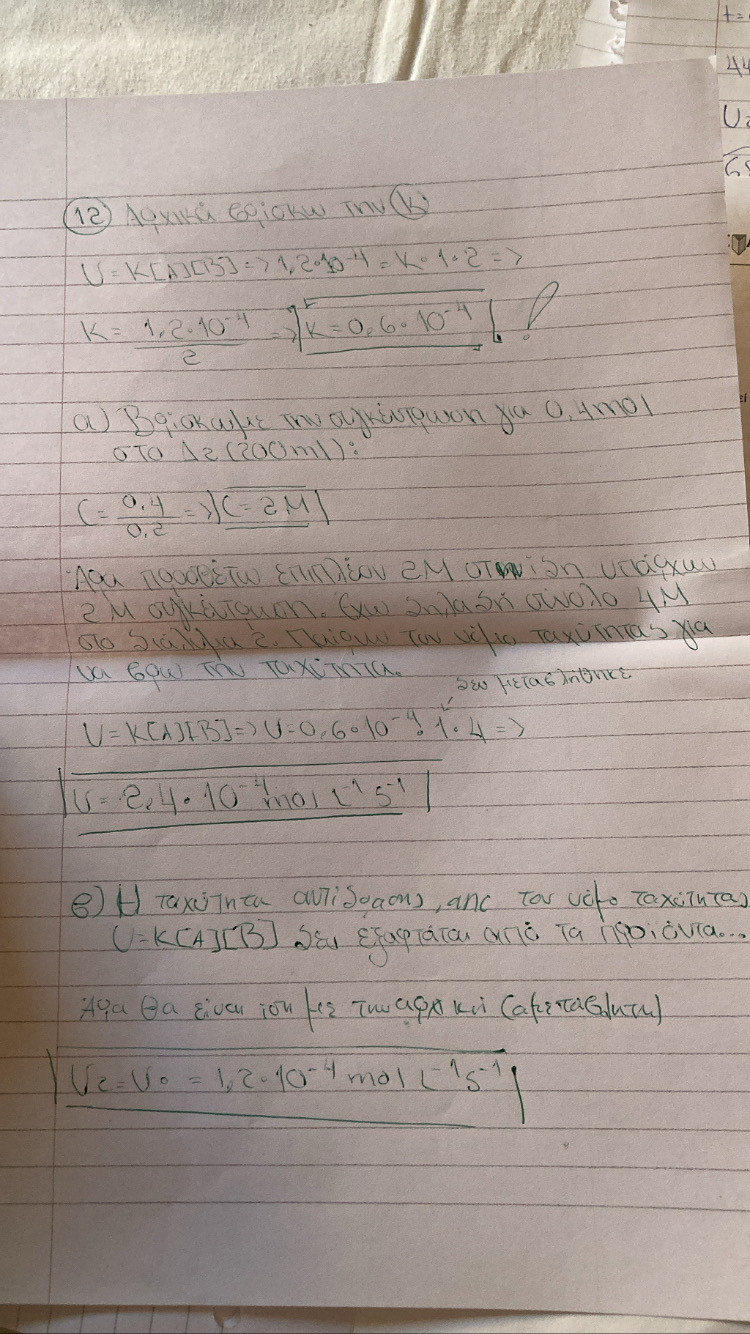 t=
44
U2
12 Αρχικά βρίσκω την K
U=K[A][B] => 1,2·10⁻⁴ = K·1·2 =>
K = 1,2·10⁻⁴ / 2 => K=0,6·10⁻⁴ !
α) Βρίσκουμε την συγκέντρωση για 0,4mol
στο Δ2 (200ml):
C = 0,4 / 0,2 => C=2M
Άρα προσθέτω επιπλέον 2M στην ίδη υπάρχων
2M συγκέντρωση. Έχω δηλαδή σύνολο 4M
στο διάλυμα 2. Παίρνω τον νόμο ταχύτητας για
να βρω την ταχύτητα.
δεν μεταβλήθηκε
U=K[A][B] => U=0,6·10⁻⁴·1·4 =>
U=2,4·10⁻⁴ mol L⁻¹ S⁻¹
β) Η ταχύτητα αντίδρασης, από τον νόμο ταχύτητας
U=K[A][B] δεν εξαρτάται από τα προϊόντα...
Άρα θα είναι ίση με την αρχική (αμετάβλητη)
U2=U0 = 1,2·10⁻⁴ mol L⁻¹ S⁻¹